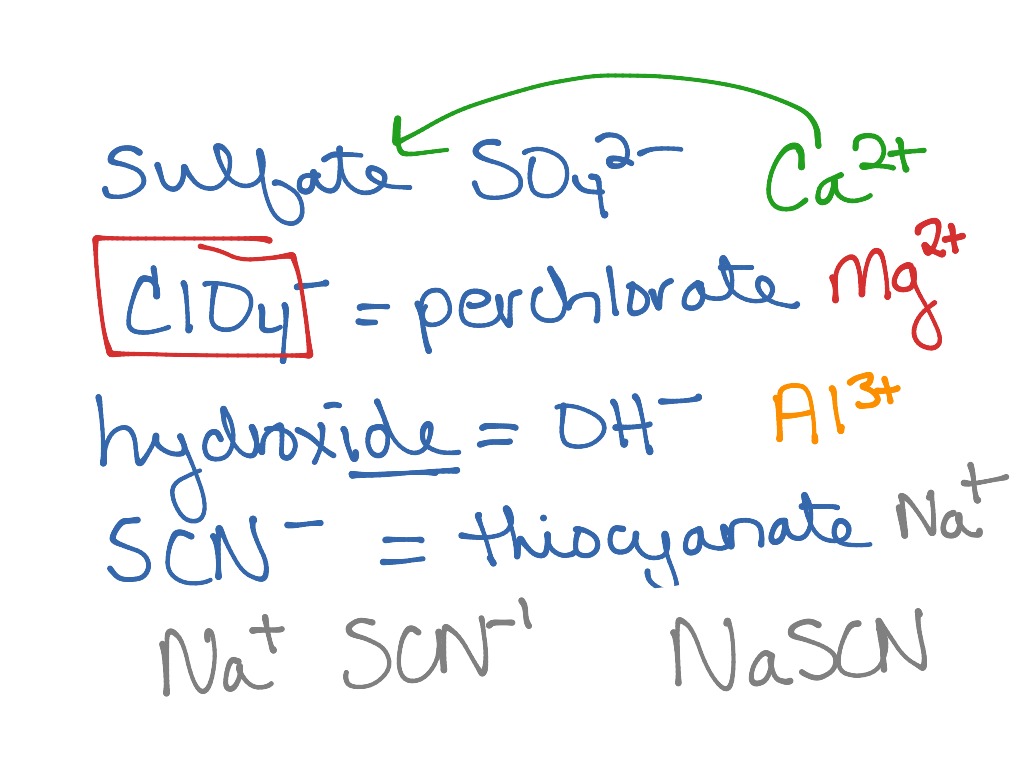 Sulfate SO₄²⁻ Ca²⁺
ClO₄⁻ = perchlorate Mg²⁺
hydroxide = OH⁻ Al³⁺
SCN⁻ = thiocyanate Na⁺
Na⁺ SCN⁻¹ NaSCN